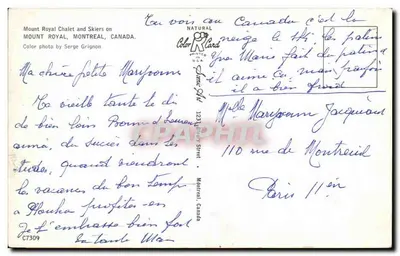 Mount Royal Chalet and Skiers on
MOUNT ROYAL, MONTREAL, CANADA.
Color photo by Serge Grignon
NATURAL
Color Card
Tu vois au Canada c'est la
neige le ski le patin
Yves Marie fait du patin
il aime ça mais parfois
il a bien froid
Ma chère petite Maryvonne
Ta vieille tante te dit
de bien loin Bonne et heureuse
année, du succès dans tes
études, quand viendront
les vacances du bon temps
à profites en
Je t'embrasse bien fort
ta tante
Melle Maryvonne Jacquiard
110 rue de Montreuil
Paris 11èm
Street Montreal, Canada
C7309